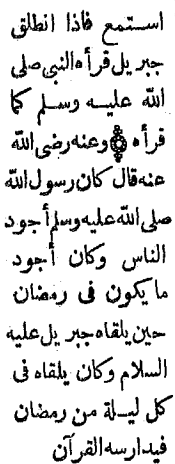 استمع فاذا انطلق
جبريل قرأه النبي صلى
الله عليه وسلم كما
قرأه وعنه رضى الله
عنه قال كان رسول الله
صلى الله عليه وسلم أجود
الناس وكان أجود
ما يكون فى رمضان
حين يلقاه جبريل عليه
السلام وكان يلقاه فى
كل ليلة من رمضان
فيدارسه القرآن